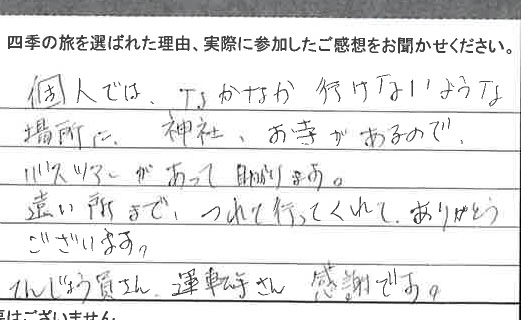 四季の旅を選ばれた理由、実際に参加したご感想をお聞かせください。
個人では、なかなか行けないような
場所に、神社、お寺があるので、
バスツアーがあって助かります。
遠い所まで、つれて行ってくれて、ありがとう
ございます。
てんじょう員さん、運転手さん 感謝です。
はございません